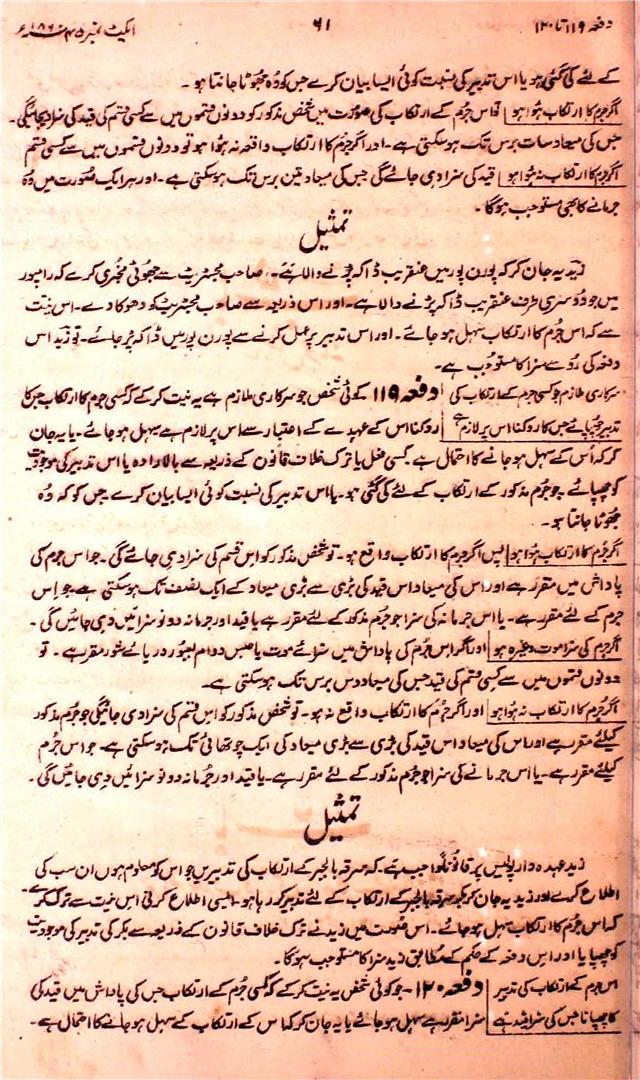 دفعہ ۱۱۹ تا ۱۲۰
۶۱
ایکٹ نمبر ۴۵ ۱۸۶۰ء
کے لئے کی گئی ہو یا اس تدبیر کی نسبت کوئی ایسا بیان کرے جس کو وہ جھوٹا جانتا ہو۔
اگر جرم کا ارتکاب ہوا ہو تو اس جرم کے ارتکاب کی صورت میں شخص مذکور کو دونوں قسموں میں سے کسی قسم کی قید کی سزا دیجائیگی۔
جس کی میعاد سات برس تک ہو سکتی ہے۔ اور اگر جرم کا ارتکاب واقعہ نہ ہوا ہو تو دونوں قسموں میں سے کسی قسم
اگر جرم کا ارتکاب نہ ہوا ہو قید کی سزا دی جائے گی جس کی میعاد تین برس تک ہو سکتی ہے۔ اور ہر ایک صورت میں وہ
جرمانے کا بھی مستوجب ہوگا۔
تمثیل
زید یہ جان کر کہ پورن پور میں عنقریب ڈاکہ پڑنے والا ہے۔ صاحب مجسٹریٹ سے جھوٹی مخبری کرے کہ رامپور
میں جو دوسری طرف عنقریب ڈاکہ پڑنے والا ہے۔ اور اس ذریعہ سے صاحب مجسٹریٹ کو دھوکا دے۔ اس نیت
سے کہ اس جرم کا ارتکاب سہل ہو جائے۔ اور اس تدبیر پر عمل کرنے سے پورن پور میں ڈاکہ پڑ جائے۔ تو زید اس
دفعہ کی رو سے سزا کا مستوجب ہے۔
سرکاری ملازم جو کسی جرم کے ارتکاب کی دفعہ ۱۱۹ کوئی شخص جو سرکاری ملازم ہے یہ نیت کر کے کہ کسی جرم کا ارتکاب جس کا
تدبیر چھپائے جس کا روکنا اس پر لازم ہے روکنا اس کے عہدے کے اعتبار سے اس پر لازم ہے سہل ہو جائے۔ یا یہ جان
کر کہ اس کے سہل ہو جانے کا احتمال ہے۔ کسی فعل یا ترک خلاف قانون کے ذریعہ سے بالارادہ یا اس تدبیر کی موجودیت
کو چھپائے جو جرم مذکور کے ارتکاب کے لئے کی گئی ہو۔ یا اس تدبیر کی نسبت کوئی ایسا بیان کرے جس کو کہ وہ
جھوٹا جانتا ہو۔
اگر جرم کا ارتکاب ہوا ہو پس اگر جرم کا ارتکاب واقع ہو۔ تو شخص مذکور کو اس قسم کی سزا دی جائے گی۔ جو اس جرم کی
پاداش میں مقرر ہے اور اس کی میعاد اس قید کی بڑی سے بڑی میعاد کے ایک نصف تک ہو سکتی ہے جو اس
جرم کے لئے مقرر ہے۔ یا اس جرمانہ کی سزا جو جرم مذکور کے لئے مقرر ہے یا قید اور جرمانہ دونو سزائیں دی جائیں گی۔
اگر جرم کی سزا موت وغیرہ ہو اور اگر اس جرم کی پاداش میں سزائے موت یا حبس دوام بعبور دریائے شور مقرر ہے۔ تو
دونوں قسموں میں سے کسی قسم کی قید جس کی میعاد دس برس تک ہو سکتی ہے۔
اگر جرم کا ارتکاب نہ ہوا ہو اور اگر جرم کا ارتکاب واقع نہ ہو۔ تو شخص مذکور کو اس قسم کی سزا دی جائیگی جو جرم مذکور
کیلئے مقرر ہے اور اس کی میعاد اس قید کی بڑی سے بڑی میعاد کی ایک چوتھائی تک ہو سکتی ہے۔ جو اس جرم
کیلئے مقرر ہے۔ یا اس جرمانے کی سزا جو جرم مذکور کے لئے مقرر ہے۔ یا قید اور جرمانہ دونو سزائیں دی جائیں گی۔
تمثیل
زید عہدہ دار پولیس پر قانوناً واجب ہے۔ کہ سرقہ بالجبر کے ارتکاب کی تدبیریں جو اس کو معلوم ہوں ان سب کی
اطلاع کرے اور زید یہ جان کر کہ بکر سرقہ بالجبر کے ارتکاب کے لئے تدبیر کر رہا ہو۔ ایسی اطلاع کرنی اس نیت سے ترک کرے۔
کہ اس جرم کا ارتکاب سہل ہو جائے۔ اس صورت میں زید نے ترک خلاف قانون کے ذریعہ سے بکر کی تدبیر کی موجودیت
کو چھپایا اور اس دفعہ کے حکم کے مطابق زید سزا کا مستوجب ہوگا۔
اس جرم کے ارتکاب کی تدبیر دفعہ ۱۲۰۔ جو کوئی شخص یہ نیت کر کے کہ کسی جرم کے ارتکاب جس کی پاداش میں قید کی
کا چھپانا جس کی سزا قید ہے سزا مقرر ہے سہل ہو جائے یا یہ جان کر کہ اس کے ارتکاب کے سہل ہو جانے کا احتمال ہے۔